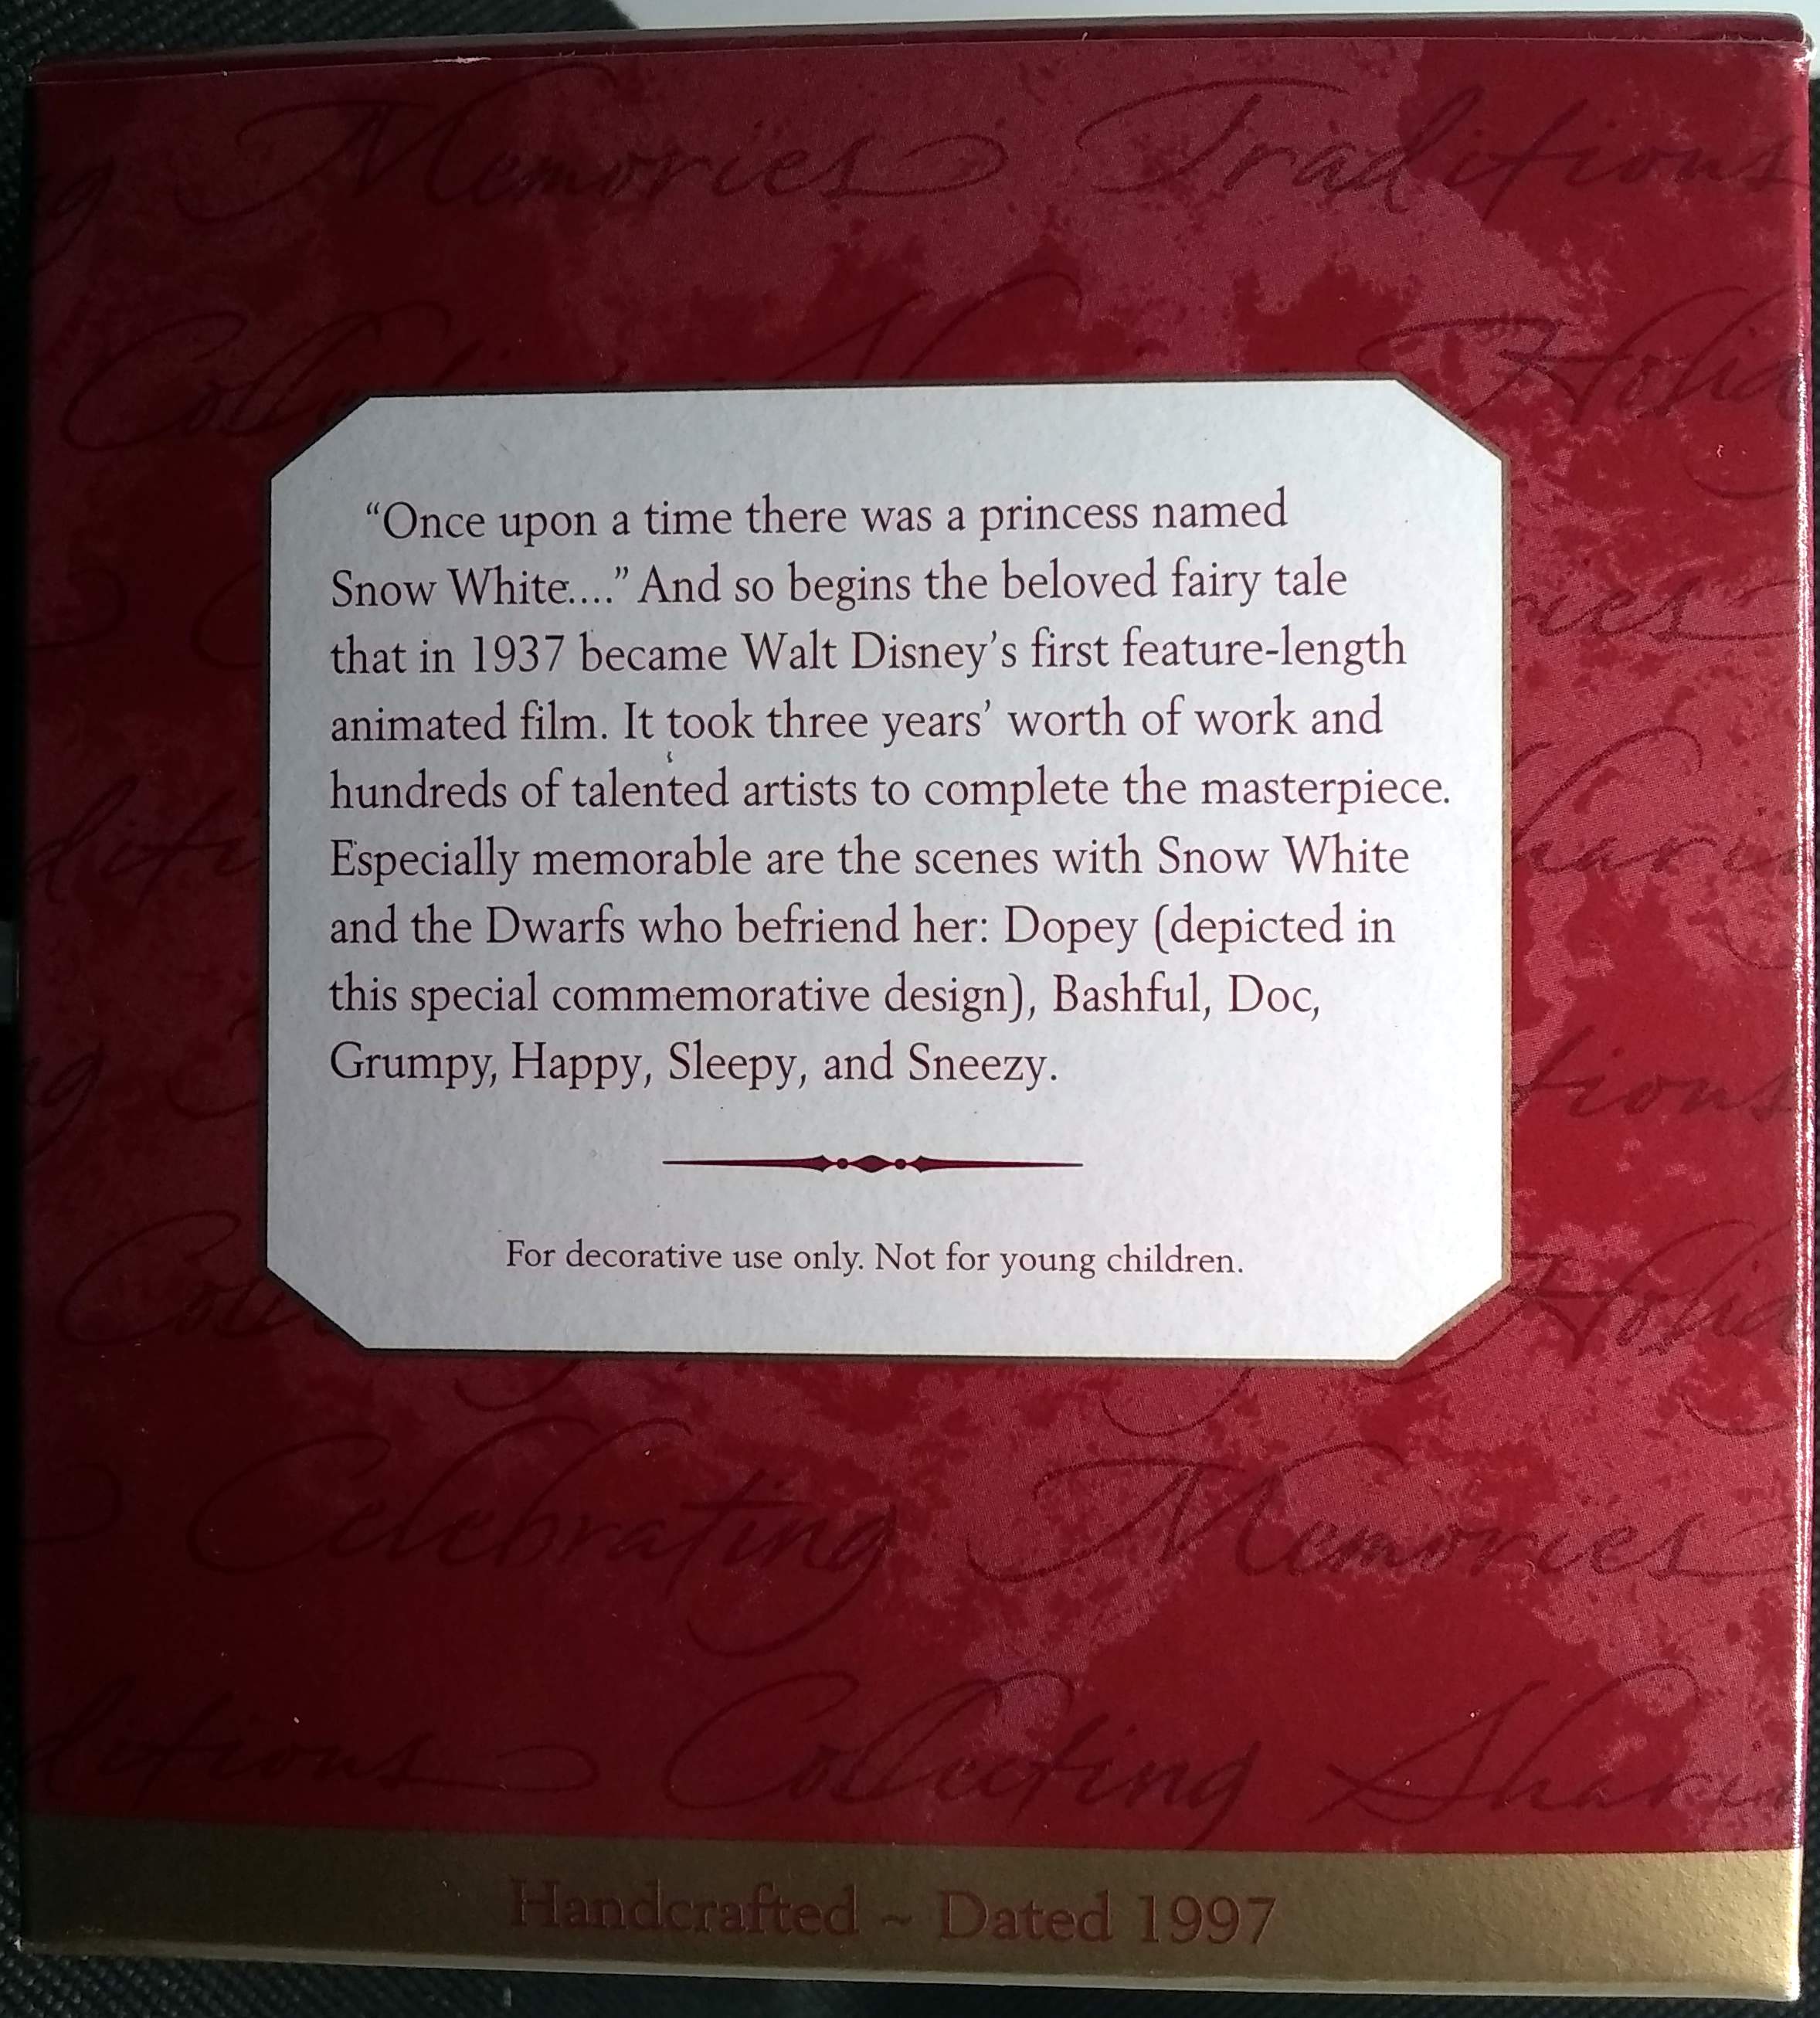 Memories Traditions
Holid
"Once upon a time there was a princess named
Snow White...." And so begins the beloved fairy tale
that in 1937 became Walt Disney's first feature-length
animated film. It took three years' worth of work and
hundreds of talented artists to complete the masterpiece.
Especially memorable are the scenes with Snow White
and the Dwarfs who befriend her: Dopey (depicted in
this special commemorative design), Bashful, Doc,
Grumpy, Happy, Sleepy, and Sneezy.
For decorative use only. Not for young children.
Celebrating Memories
ditions Collecting Sharin
Handcrafted ~ Dated 1997